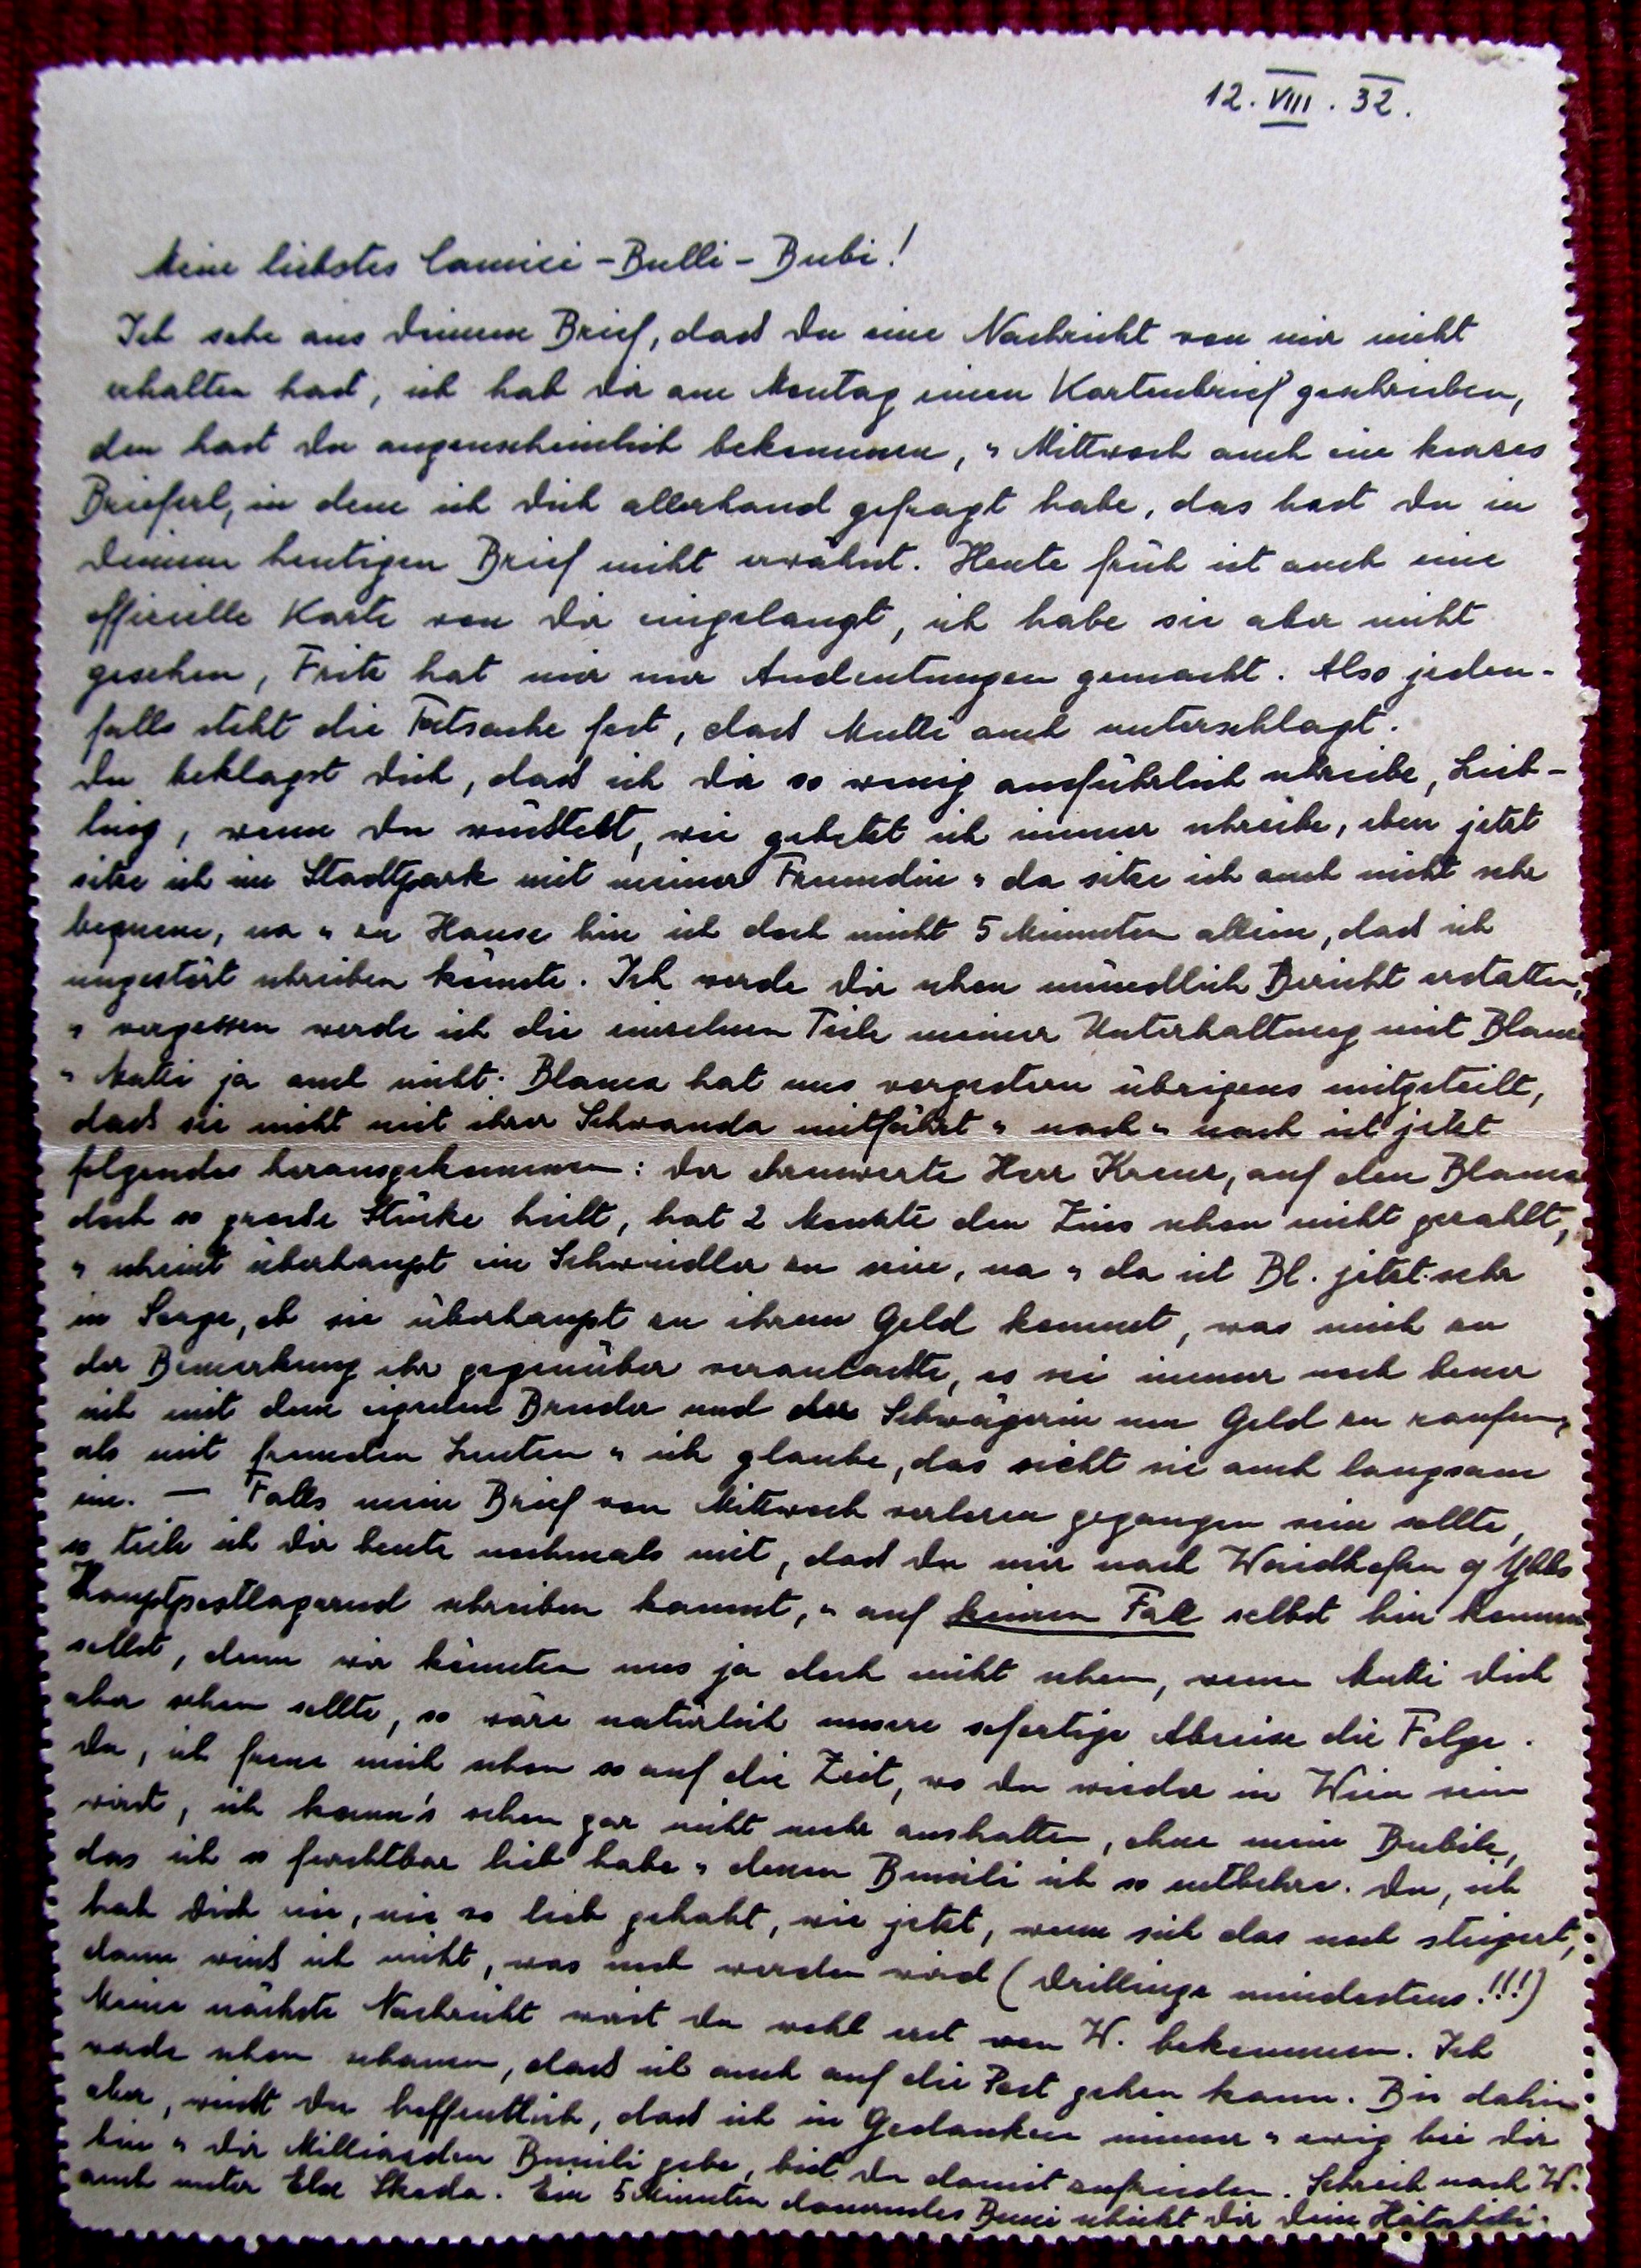 12. VIII. 32.
Meine liebstes Camici-Bulli-Bubi!
Ich sehe aus Deinem Brief, dass Du eine Nachricht von mir nicht
erhalten hast, ich hab Dir am Montag einen Kartenbrief geschrieben,
den hast Du augenscheinlich bekommen, " Mittwoch auch ein kurzes
Brieferl, in dem ich Dich allerhand gefragt habe, das hast Du in
Deinem heutigen Brief nicht erwähnt. Heute früh ist auch eine
offizielle Karte von Dir eingelangt, ich habe sie aber nicht
gesehen, Fritz hat mir nur Andeutungen gemacht. Also jeden-
falls steht die Tatsache fest, dass Mutti auch unterschlagt.
Du beklagst Dich, dass ich Dir so wenig ausführlich schreibe, Lieb-
ling, wenn Du wüsstest, wie gehetzt ich immer schreibe, eben jetzt
sitze ich im Stadtpark mit meiner Freundin " da sitze ich auch nicht sehr
bequem, na " zu Hause bin ich doch nicht 5 Minuten allein, dass ich
ungestört schreiben könnte. Ich werde Dir schon mündlich Bericht erstatten,
" vergessen werde ich die einzelnen Teile meiner Unterhaltung mit Blanca
" Mutti ja auch nicht. Blanca hat uns vorgestern übrigens mitgeteilt,
dass sie nicht mit ihrer Schwanda mitfährt " nach " nach ist jetzt
folgendes herausgekommen: Der ehrenwerte Herr Kreuz, auf den Blanca
doch so grosse Stücke hielt, hat 2 Monate den Zins schon nicht gezahlt,
" scheint überhaupt ein Schwindler zu sein, na " da ist Bl. jetzt sehr
in Sorge, ob sie überhaupt zu ihrem Geld kommt, was mich zu
der Bemerkung ihr gegenüber veranlasste, es sei immer noch besser
sich mit dem eigenen Bruder und der Schwägerin um Geld zu raufen,
als mit fremden Leuten " ich glaube, das sieht sie auch langsam
ein. — Falls mein Brief von Mittwoch verloren gegangen sein sollte,
so teile ich Dir heute nochmals mit, dass Du mir nach Waidhofen a/ Ybbs
Hauptpostlagernd schreiben kannst, " auf keinen Fall selbst hin kommen
sollst, denn wir könnten uns ja doch nicht sehen, wenn Mutti Dich
aber sehen sollte, so wäre natürlich unsere sofortige Abreise die Folge.
Du, ich freue mich schon so auf die Zeit, wo Du wieder in Wien sein
wirst, ich kann's schon gar nicht mehr aushalten, ohne mein Bubili,
das ich so furchtbar lieb habe " dessen Bussili ich so entbehre. Du, ich
hab Dich nie, nie so lieb gehabt, wie jetzt, wenn sich das noch steigert,
dann weiss ich nicht, was noch werden wird (Drillinge mindestens!!!)
Meine nächste Nachricht wirst Du wohl erst von W. bekommen. Ich
werde schon schauen, dass ich auch auf die Post gehen kann. Bis dahin
aber, weisst Du hoffentlich, dass ich in Gedanken immer " ewig bei Dir
bin " Dir Milliarden Bussili gebe, bist Du damit zufrieden. Schreib nach W.
auch unter Else Skoda. Ein 5 Minuten dauerndes Bussi schickt Dir Dein